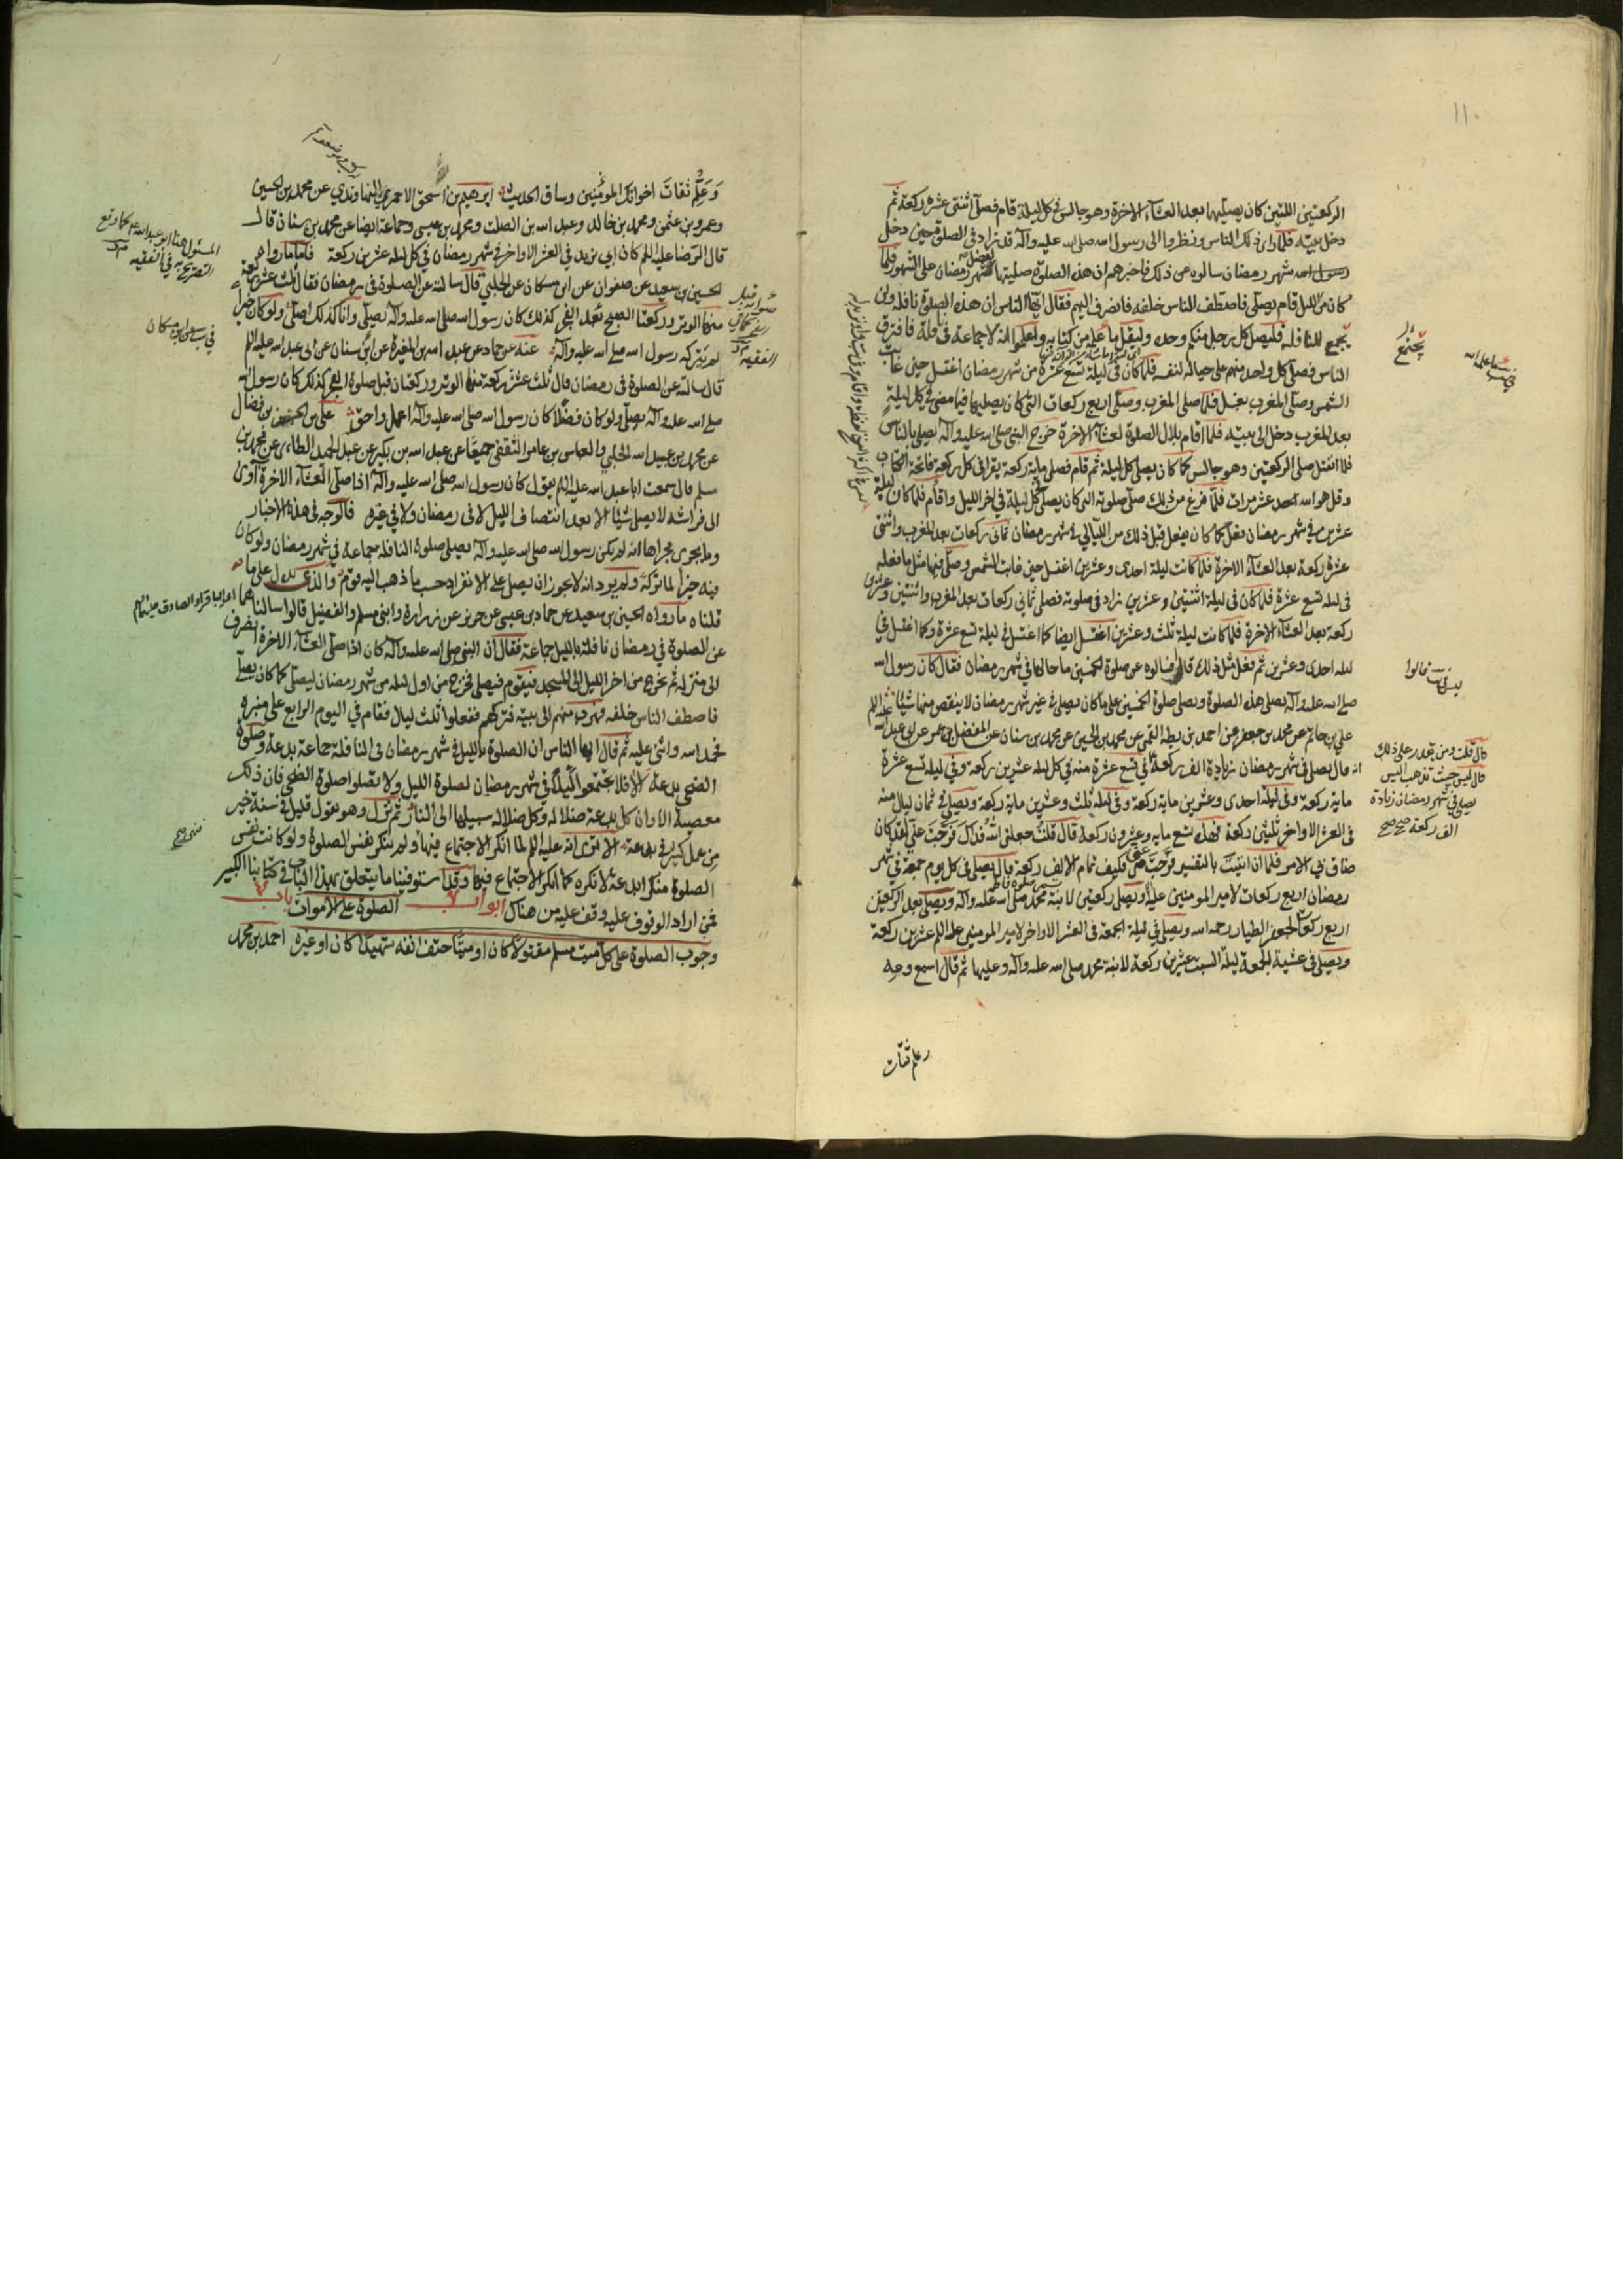 ١١٠
الركعتين اللتين كان يصليهما بعد العشاء الاخرة وهو جالس في كل ليلة قام فصلى اثنتي عشرة ركعة ثم
دخل بيته فلما راى ذلك الناس ونظروا الى رسول الله صلى الله عليه وآله قد زاد في الصلوة حين دخل
شهر رمضان سالوه عن ذلك فاخبرهم ان هذه الصلوة صليتها لفضل شهر رمضان على الشهور فلما
كان من الليل قام يصلى فاصطف الناس خلفه فانصرف اليهم فقال ايها الناس ان هذه الصلوة نافلة ولن
يجمع للنافلة فليصل كل رجل منكم وحده وليقل ما علمه من كتابه واعلموا انه لا جماعة في نافلة فافترق
الناس فصلى كل واحد منهم على حياله لنفسه فلما كان في ليلة تسع عشرة من شهر رمضان اغتسل حين غابت
الشمس وصلى المغرب بغسل فلما صلى المغرب وصلى اربع ركعات التي كان يصليها فيما مضى في كل ليلة
بعد المغرب دخل الى بيته فلما اقام بلال الصلوة لعشاء الاخرة خرج النبي صلى الله عليه وآله يصلى بالناس
فلما انفتل صلى الركعتين وهو جالس كما كان يصلى كل ليلة ثم قام فصلى ماية ركعة يقرا في كل ركعة فاتحة الكتاب
وقل هو الله احد عشر مرات فلما فرغ من ذلك صلى صلوته التي كان يصلى كل ليلة في اخر الليل واقام فلما كان ليلة
عشرين في شهر رمضان فعل كما كان يفعل قبل ذلك من الليالي في شهر رمضان ثماني ركعات بعد المغرب واثنتي
عشرة ركعة بعد العشاء الاخرة فلما كانت ليلة احدى وعشرين اغتسل حين غابت الشمس وصلى فيها مثل ما فعله
في ليلة تسع عشرة فلما كان في ليلة اثنتين وعشرين زاد في صلوته فصلى ثماني ركعات بعد المغرب واثنتين وعشرين
ركعة بعد العشاء الاخرة فلما كانت ليلة ثلث وعشرين اغتسل ايضا كما اغتسل في ليلة تسع عشرة وكما اغتسل في
ليلة احدى وعشرين ثم فعل مثل ذلك قال فسالوه عن صلوة الخمسين ما حالها في شهر رمضان فقال كان رسول الله
صلى الله عليه وآله يصلى هذه الصلوة ويصلى صلوة الخمسين على ما كان يصلى في غير شهر رمضان لا ينقص منها شيئا
علي بن حاتم عن محمد بن جعفر عن احمد بن بطة القمي عن محمد بن الحسين عن محمد بن سنان عن المفضل بن عمر عن ابي عبد الله عليه السلم
انه قال يصلى في شهر رمضان زيادة الف ركعة في تسع عشرة منه في كل ليلة عشرين ركعة وفي ليلة تسع عشرة
ماية ركعة وفي ليلة احدى وعشرين ماية ركعة وفي ليلة ثلث وعشرين ماية ركعة ويصلى في ثمان ليال منه
في العشر الاواخر ثلثين ركعة فهذه تسع ماية وعشرون ركعة قال قلت جعلني الله فداك فرجت عني لقد كان
ضاق في الامر فلما ان اتيت بالتفسير فرجت عني فكيف تمام الالف ركعة قال يصلى في كل يوم جمعة في شهر
رمضان اربع ركعات لامير المومنين عليه ويصلى ركعتين لابنة محمد صلى الله عليه وآله ويصلى بعد الركعتين
اربع ركعات لجعفر الطيار رحمه الله ويصلى في ليلة الجمعة في العشر الاواخر لامير المومنين عليه السلم عشرين ركعة
ويصلى في عشية الجمعة ليلة السبت عشرين ركعة لابنة محمد صلى الله عليه وآله وعليها ثم قال اسمع وعه
وعلم ثقات
تجتمع
قال قلت ومن يقدر على ذلك
قال ليس حيث تذهب اليس
يصلى في شهر رمضان زيادة
الف ركعة صح صح
وَعَلِّم ثقات اخوانك المومنين وساق الحديث ابرهيم بن اسحق الاحمري النهاوندي عن محمد بن الحسين
وعمرو بن عثمن ومحمد بن خالد وعبد الله بن الصلت ومحمد بن عيسى وجماعة ايضا عن محمد بن سنان قال
قال الرضا عليه السلم كان ابي يزيد في العشر الاواخر في شهر رمضان في كل ليلة عشرين ركعة فاما ما رواه
الحسين بن سعيد عن صفوان عن ابن مسكان عن الحلبي قال سالته عن الصلوة في رمضان فقال ثلث عشرة ركعة
منها الوتر وركعتا الصبح بعد الفجر كذلك كان رسول الله صلى الله عليه وآله يصلى وانا كذلك اصلى ولو كان خيرا
لم يتركه رسول الله صلى الله عليه وآله عنه عن حماد عن عبد الله بن المغيرة عن ابن سنان عن ابي عبد الله عليه السلم
قال سالته عن الصلوة في رمضان قال ثلث عشرة ركعة منها الوتر وركعتان قبل صلوة الفجر كذلك كان رسول الله
صلى الله عليه وآله يصلى ولو كان فضلا كان رسول الله صلى الله عليه وآله اعمل واحق علي بن الحسن بن فضال
عن محمد بن عبيد الله الحلبي والعباس بن عامر الثقفي جميعا عن عبد الله بن بكير عن عبد الحميد الطائي عن محمد بن
مسلم قال سمعت ابا عبد الله عليه السلم يقول كان رسول الله صلى الله عليه وآله اذا صلى العشاء الاخرة اوى
الى فراشه لا يصلى شيئا الا بعد انتصاف الليل لا في رمضان ولا في غيره فالوجه في هذه الاخبار
وما يجرى مجراها انه لم يكن رسول الله صلى الله عليه وآله يصلى صلوة النافلة جماعة في شهر رمضان ولو كان
فيه خيرا لما تركه ولم يرد انه لا يجوز ان يصلى على الانفراد حسب ما ذهب اليه قوم والذى يدل على ما
قلناه ما رواه الحسين بن سعيد عن حماد بن عيسى عن حريز عن زرارة وابن مسلم والفضيل قالوا سالناهما
عن الصلوة في رمضان نافلة بالليل جماعة فقالا ان النبي صلى الله عليه وآله كان اذا صلى العشاء الاخرة انصرف
الى منزله ثم يخرج من اخر الليل الى المسجد فيقوم فيصلى فخرج من اول ليلة من شهر رمضان ليصلى كما كان يصلى
فاصطف الناس خلفه فهرب منهم الى بيته وتركهم ففعلوا ثلث ليال فقام في اليوم الرابع على منبره
فحمد الله واثنى عليه ثم قال ايها الناس ان الصلوة بالليل في شهر رمضان في النافلة جماعة بدعة وصلوة
الضحى بدعة الا فلا تجتمعوا ليلا في شهر رمضان لصلوة الليل ولا تصلوا صلوة الضحى فان ذلك
معصية الا وان كل بدعة ضلالة وكل ضلالة سبيلها الى النار ثم نزل وهو يقول قليل في سنة خير
من عمل كثير في بدعة الا ترى انه عليه السلم لما انكر الاجتماع فيها ولم ينكر نفس الصلوة ولو كانت نفس
الصلوة منكرا بدعة لانكره كما انكر الاجتماع فيها وقد استوفينا ما يتعلق بهذا الباب في كتابنا الكبير
فمن اراد الوقوف عليه وقف عليه من هناك ابواب الصلوة على الاموات باب
وجوب الصلوة على كل ميت مسلم مقتولا كان او ميتا حتف انفه شهيدا كان او غيره احمد بن محمد
المسئول هنا ابو عبد الله ع كما وقع
التصريح به في الفقيه